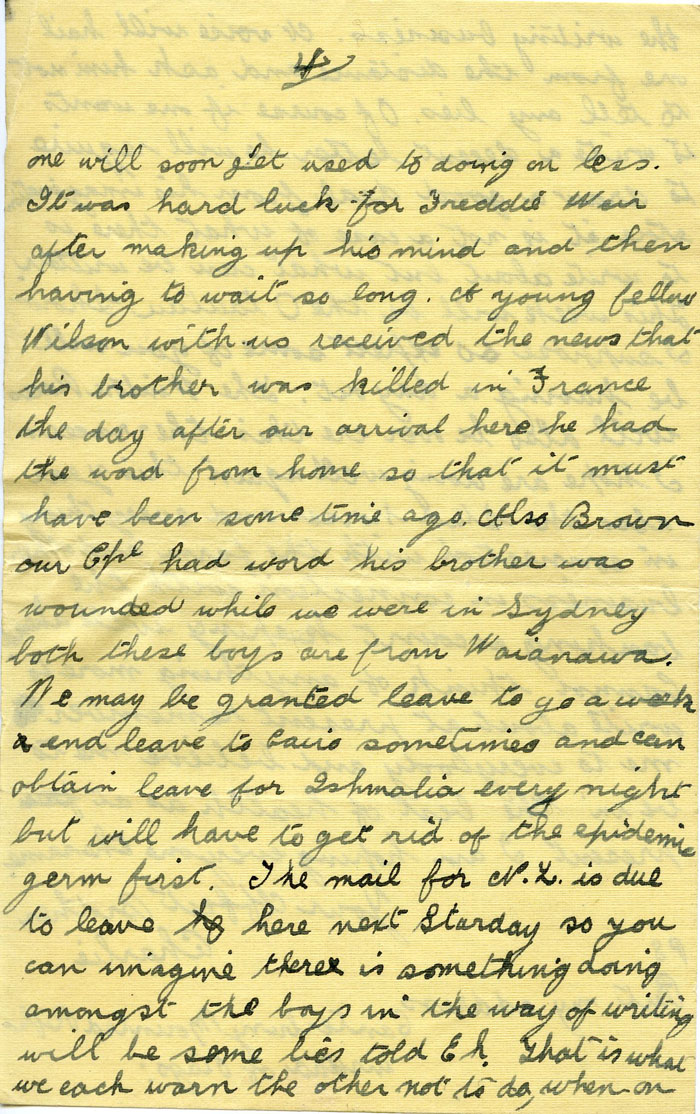 4
one will soon get used to doing on less.
It was hard luck for Freddie Weir
after making up his mind and then
having to wait so long. A young fellow
Wilson with us received the news that
his brother was killed in France
the day after our arrival here he had
the word from home so that it must
have been some time ago. Also Brown
our Cpl had word his brother was
wounded while we were in Sydney
both these boys are from Waianawa.
We may be granted leave to go a week
end leave to Cairo sometimes and can
obtain leave for Ishmalia every night
but will have to get rid of the epidemic
germ first. The mail for N.Z. is due
to leave here next Starday so you
can imagine there is something doing
amongst the boys in the way of writing
will be some lies told Eh. That is what
we each warn the other not to do, when on